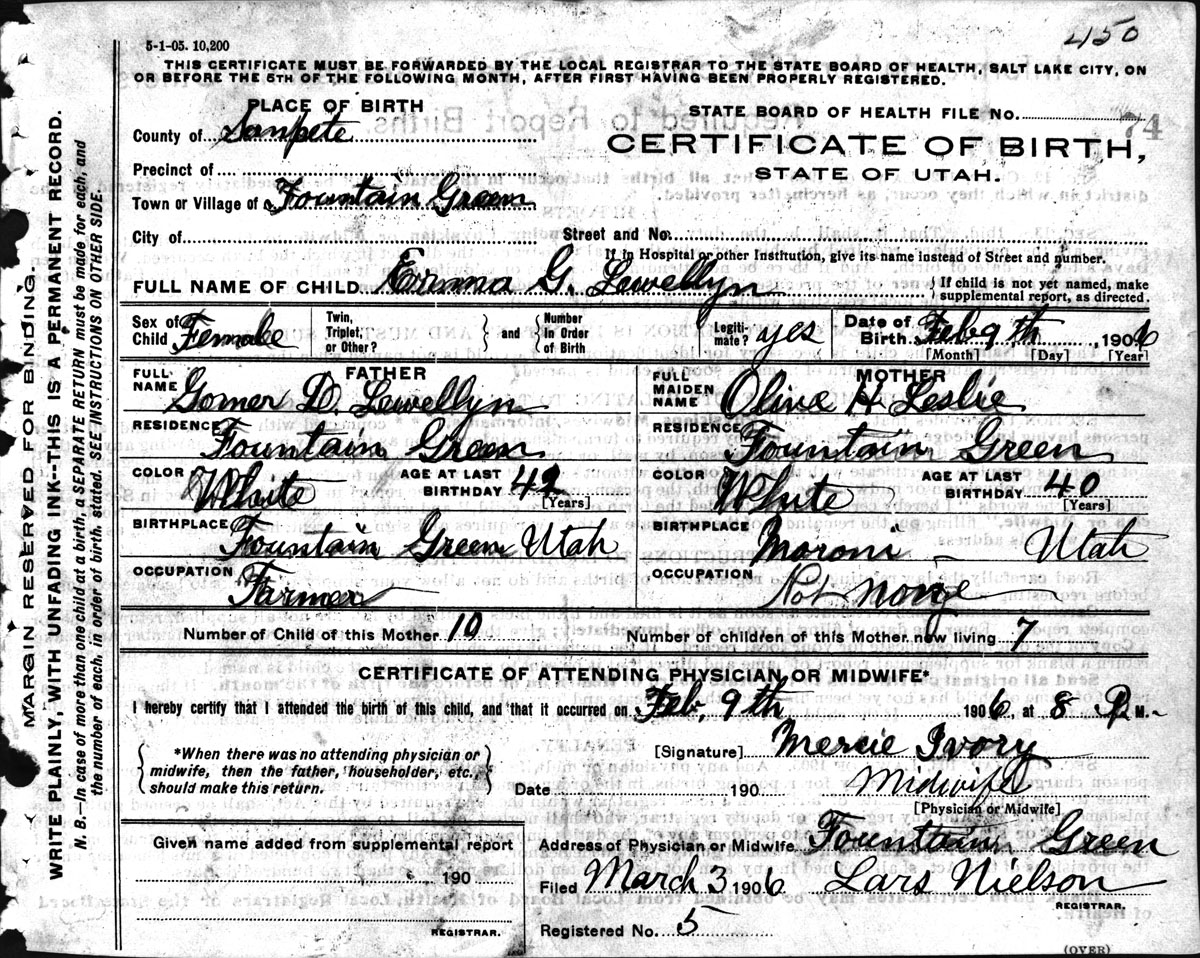 450
5-1-05. 10,200
THIS CERTIFICATE MUST BE FORWARDED BY THE LOCAL REGISTRAR TO THE STATE BOARD OF HEALTH, SALT LAKE CITY, ON
OR BEFORE THE 5TH OF THE FOLLOWING MONTH, AFTER FIRST HAVING BEEN PROPERLY REGISTERED.
PLACE OF BIRTH
STATE BOARD OF HEALTH FILE NO.
74
County of Sanpete
CERTIFICATE OF BIRTH,
STATE OF UTAH.
Precinct of
Town or Village of Fountain Green
City of Street and No.
If in Hospital or other Institution, give its name instead of Street and number.
FULL NAME OF CHILD Emma G. Lewellyn { If child is not yet named, make supplemental report, as directed.
Sex of Child Female Twin, Triplet, or Other? } and { Number In Order of Birth Legiti-mate? yes Date of Birth Feb 9th, 1906
[Month] [Day] [Year]
FATHER MOTHER
FULL NAME Gomer D. Lewellyn FULL MAIDEN NAME Olive H Leslie
RESIDENCE Fountain Green RESIDENCE Fountain Green
COLOR White AGE AT LAST BIRTHDAY 42 [Years] COLOR White AGE AT LAST BIRTHDAY 40 [Years]
BIRTHPLACE Fountain Green Utah BIRTHPLACE Moroni - Utah
OCCUPATION Farmer OCCUPATION Not
Number of Child of this Mother 10 Number of children of this Mother now living 7
CERTIFICATE OF ATTENDING PHYSICIAN OR MIDWIFE*
I hereby certify that I attended the birth of this child, and that it occurred on Feb, 9th 1906, at 8 P. M.
{ *When there was no attending physician or midwife, then the father, householder, etc. should make this return. }
[Signature] Mercie Ivory
Date 190 Midwife
[Physician or Midwife]
Given name added from supplemental report
Address of Physician or Midwife Fountain Green
190
Filed March 3 1906 Lars Nielson
REGISTRAR.
REGISTRAR.
Registered No. 5
(OVER)
MARGIN RESERVED FOR BINDING.
WRITE PLAINLY, WITH UNFADING INK--THIS IS A PERMANENT RECORD.
N. B.--In case of more than one child at a birth, a SEPARATE RETURN must be made for each, and
the number of each, in order of birth, stated. SEE INSTRUCTIONS ON OTHER SIDE.